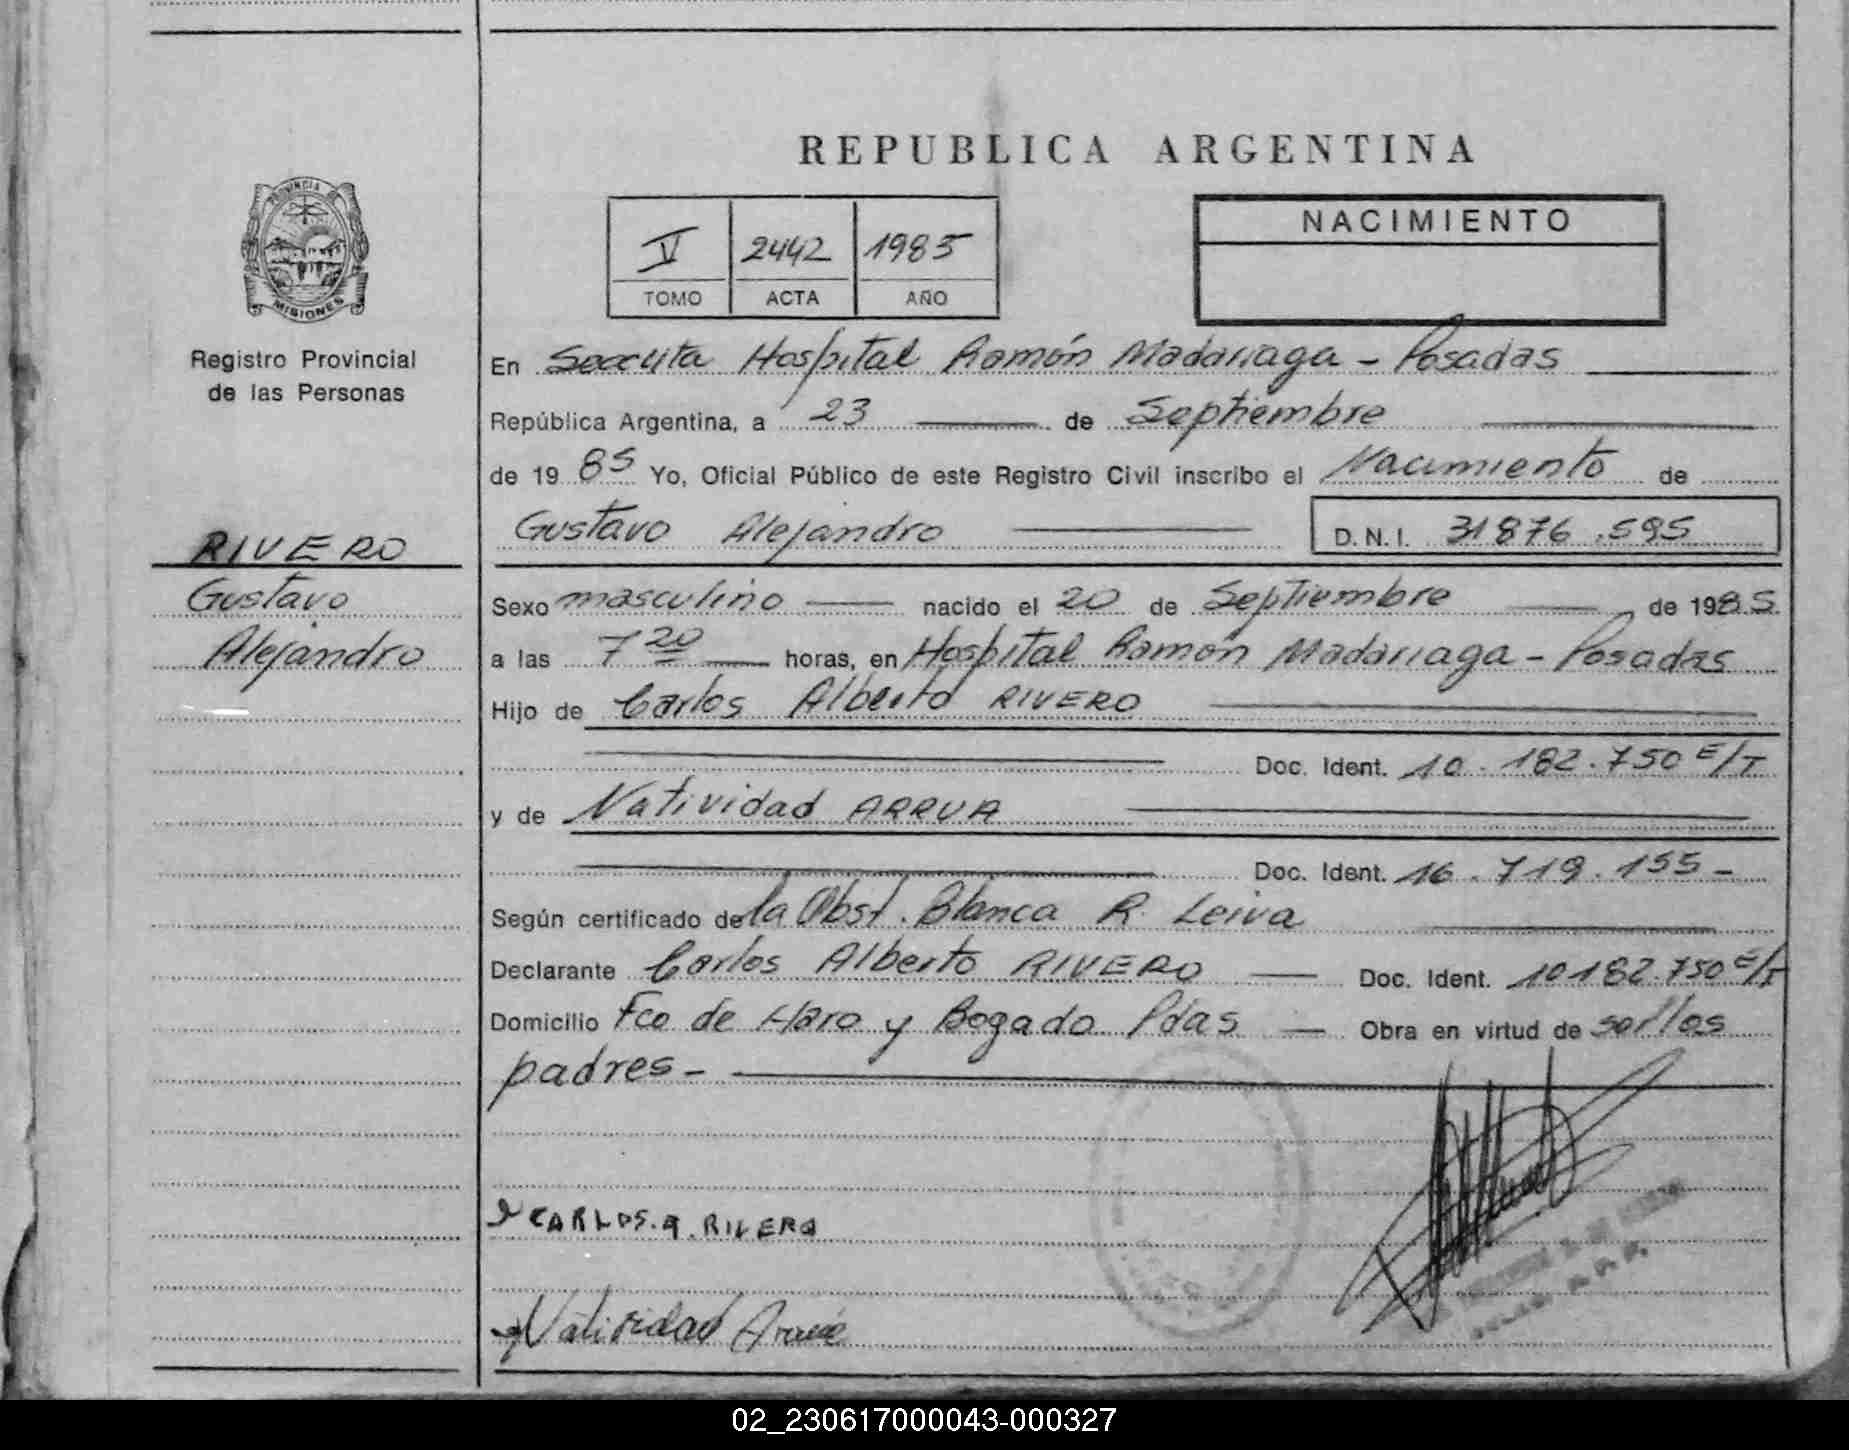 REPUBLICA ARGENTINA
PROVINCIA
MISIONES
Registro Provincial
de las Personas
RIVERO
Gustavo
Alejandro
V 2442 1985
TOMO ACTA AÑO
NACIMIENTO
En Hospital Ramón Madariaga - Posadas
República Argentina, a 23 de Septiembre
de 1985 Yo, Oficial Público de este Registro Civil inscribo el Nacimiento de
Gustavo Alejandro D.N.I. 31876.595
Sexo masculino nacido el 20 de Septiembre de 1985
a las 7 20 horas, en Hospital Ramón Madariaga - Posadas
Hijo de Carlos Alberto RIVERO
Doc. Ident. 10.182.750 E/T
y de Natividad ARRUA
Doc. Ident. 16.719.155-
Según certificado de la Obst. Blanca R. Leiva
Declarante Carlos Alberto RIVERO Doc. Ident. 10182.750 E/T
Domicilio Fco de Haro y Bogado Pdas Obra en virtud de ser los
padres-
CARLOS.A.RIVERO
Natividad Arrua
02_230617000043-000327